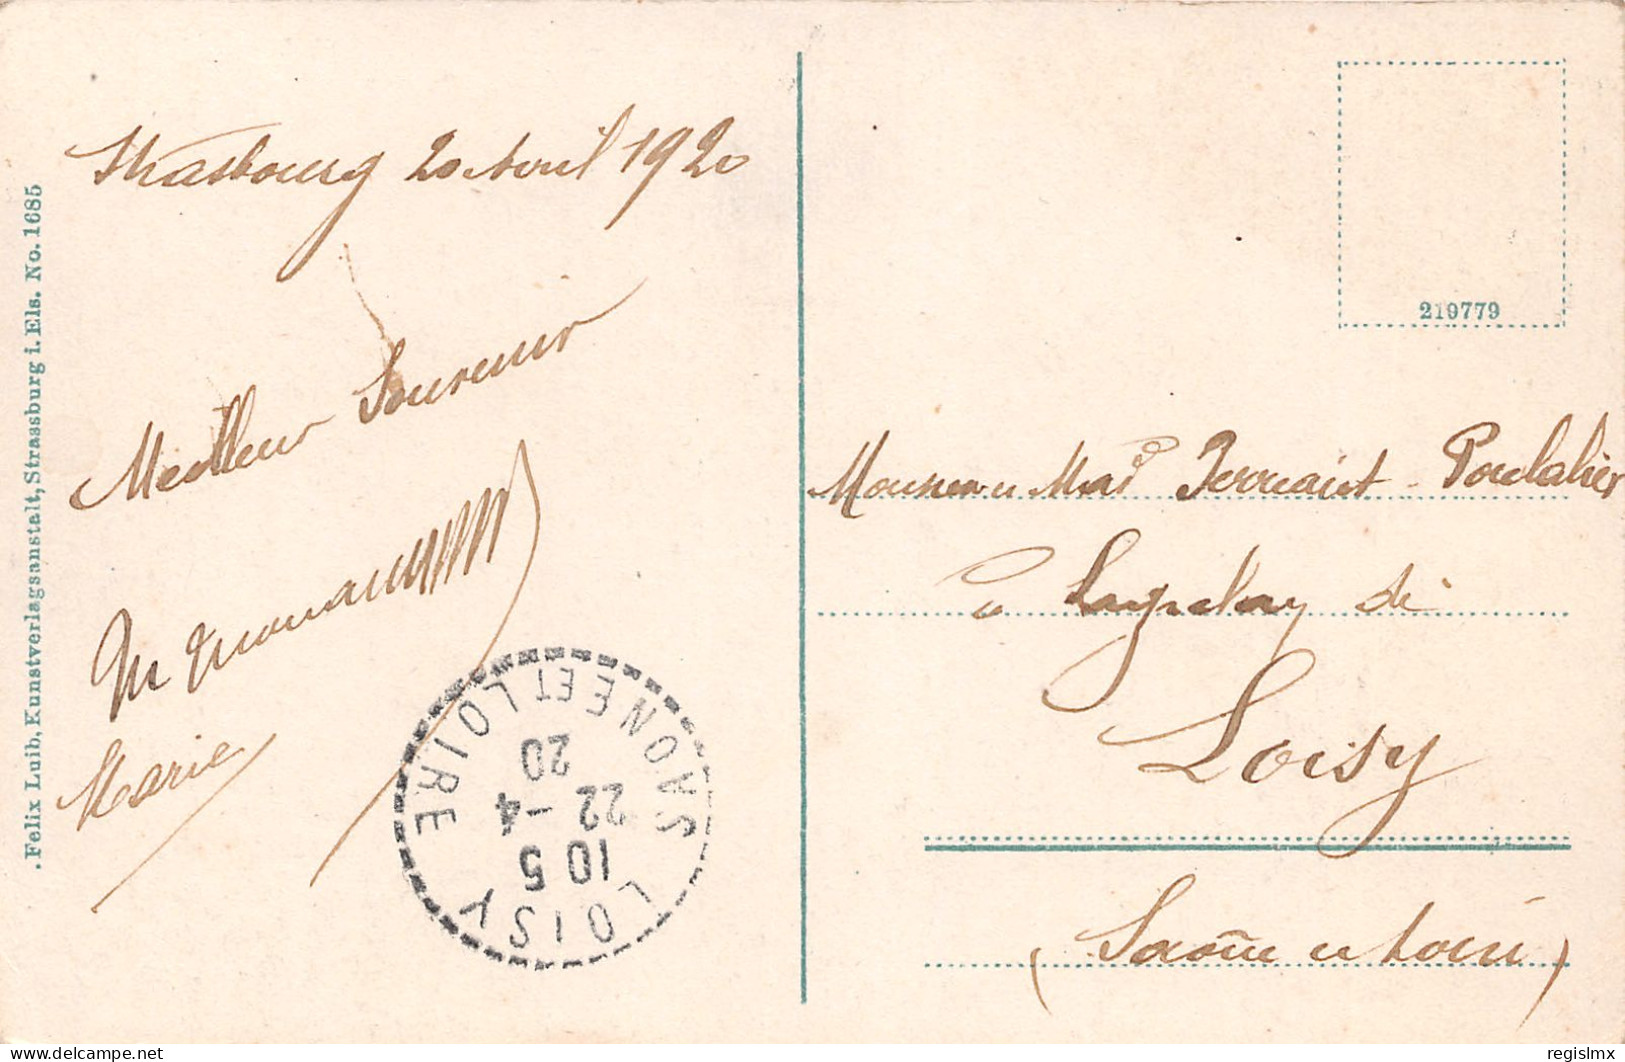 .Felix Luib, Kunstverlagsanstalt, Strassburg i. Els. No. 1685
Strasbourg 20 Avril 1920
Meilleur Souvenir
M
Marie
SAONE ET LOIRE
20
22 - 4
10 5
LOISY
219779
Monsieur et Mad
à de
Loisy
(Saône et Loire)
regislmx